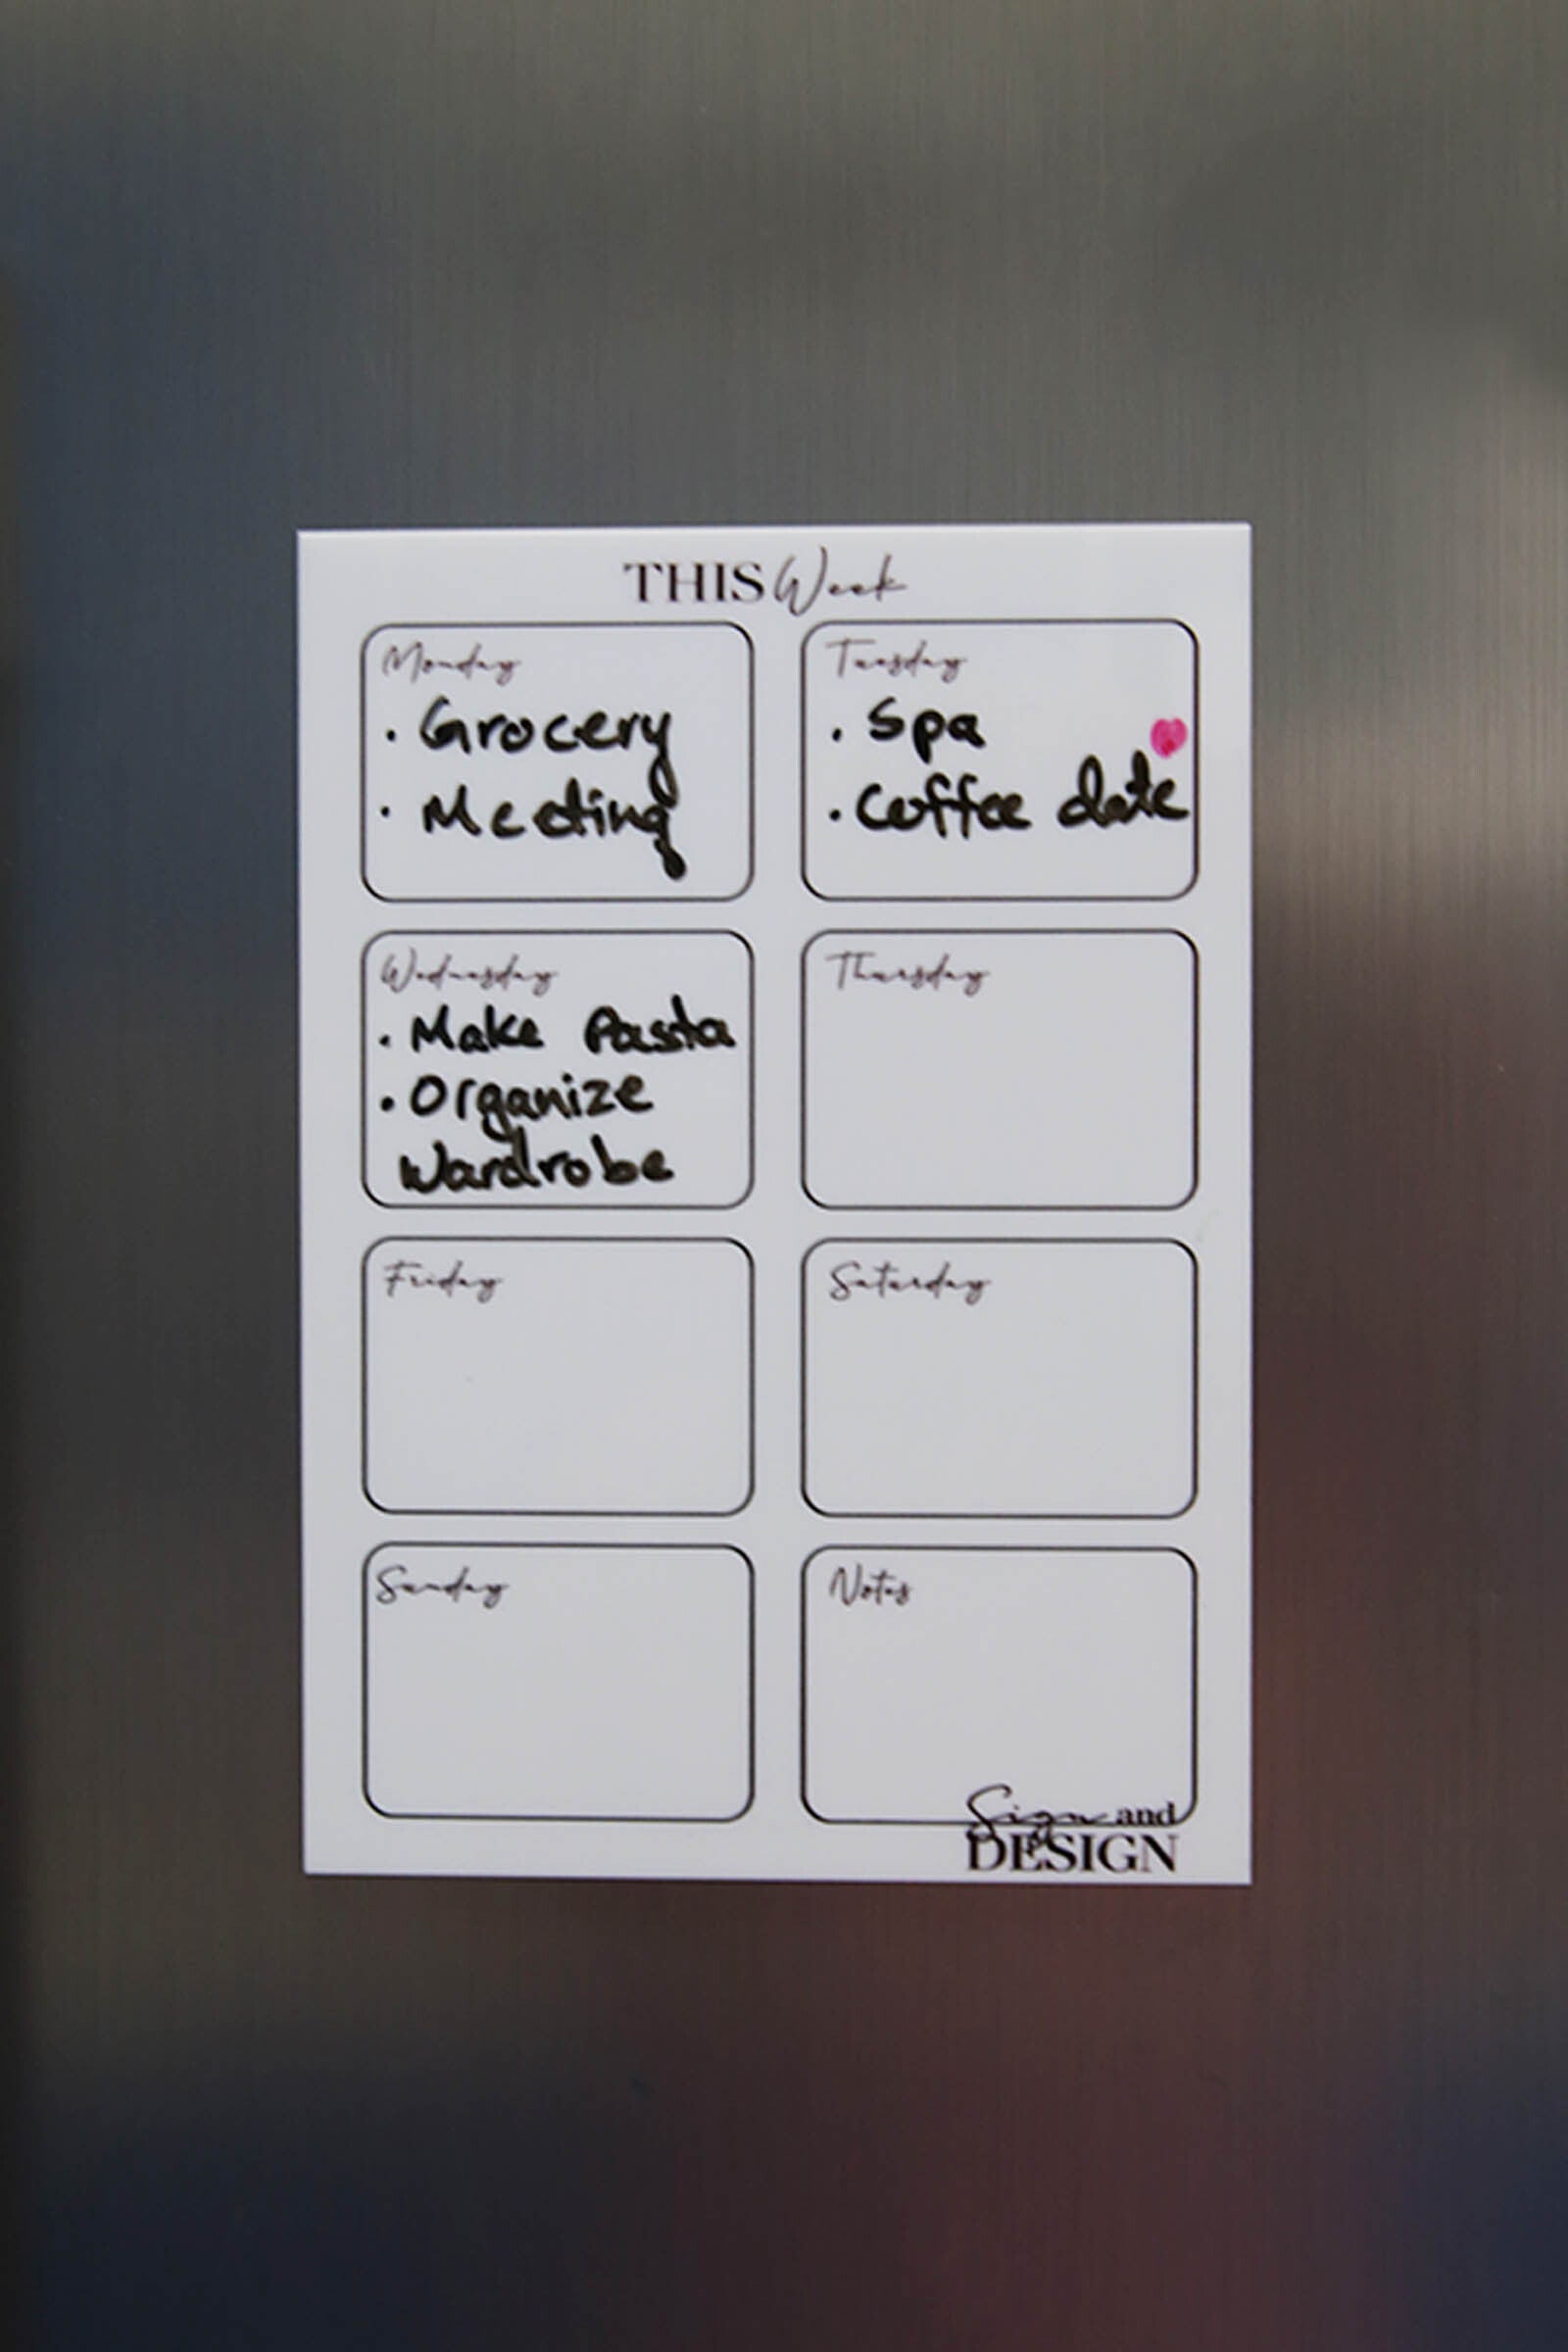 THIS Week
Monday
. Grocery
. Meeting
Tuesday
. Spa
. Coffee date
Wednesday
. Make Pasta
. Organize
Wardrobe
Thursday
Friday
Saturday
Sunday
Notes
Sign and
DESIGN